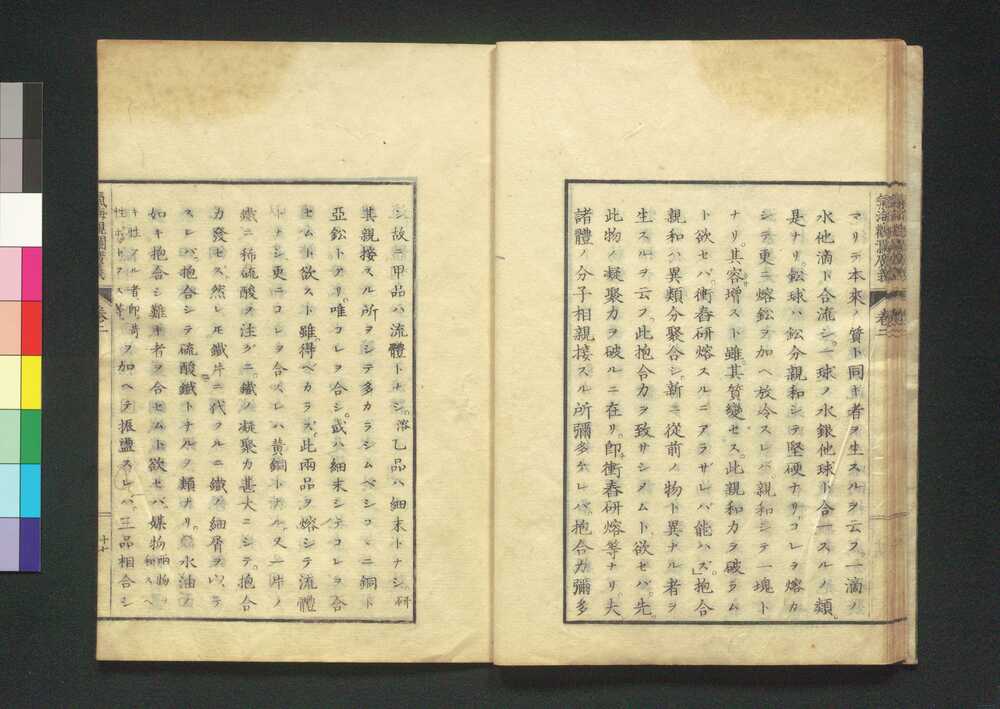 マリテ本來ノ質ト同キ者ヲ生スルヲ云フ。一滴ノ
水他滴ト合流シ。一球ノ水銀他球ト合一スルノ類。
是ナリ。鉛球ハ鉛分親和シテ堅硬ナリ。コレヲ熔カ
シテ更ニ熔鉛ヲ加ヘ放冷スレバ。親和シテ一塊ト
ナリ。其容増スト雖。其質變セス。此親和力ヲ破ラム
ト欲セバ。衝舂研熔スルニアラザレバ能ハズ」抱合
親和ハ異類分聚合シ。新ニ從前ノ物ト異ナル者ヲ
生スルヲ云フ。此抱合力ヲ致サシメムト欲セバ。先。
此物ノ凝聚力ヲ破ルニ在リ。卽。衝舂研熔等ナリ。夫。
諸體ノ分子相親接スル所彌多ケレバ。抱合力彌多
氣海觀瀾廣義
卷二
シ故ニ甲品ハ流體トナシ。溶乙品ハ細末トナシ研
其親接スル所ヲシテ多カラシムベシコヽニ銅ト
亞鉛トアリ。唯コレヲ合シ。或ハ細末シテコレヲ合
セムト欲スト雖。得ベカラズ。此兩品ヲ熔シテ流體
トナシ。更ニコレヲ合スレハ黄銅トナル。又一片ノ
鐵ニ稀硫酸ヲ注グニ。鐵ノ凝聚力甚大ニシテ。抱合
力發セス。然レモ鐵片ニ代フルニ鐵ノ細屑ヲ以テ
スレバ。抱合シテ硫酸鐵トナルノ類ナリ。水油ノ
如キ抱合シ難キ者ヲ合セムト欲セバ。媒物兩物ヲ和スヘ
ヲ加ヘテ振盪スレバ。三品相合シ
卷二
十七